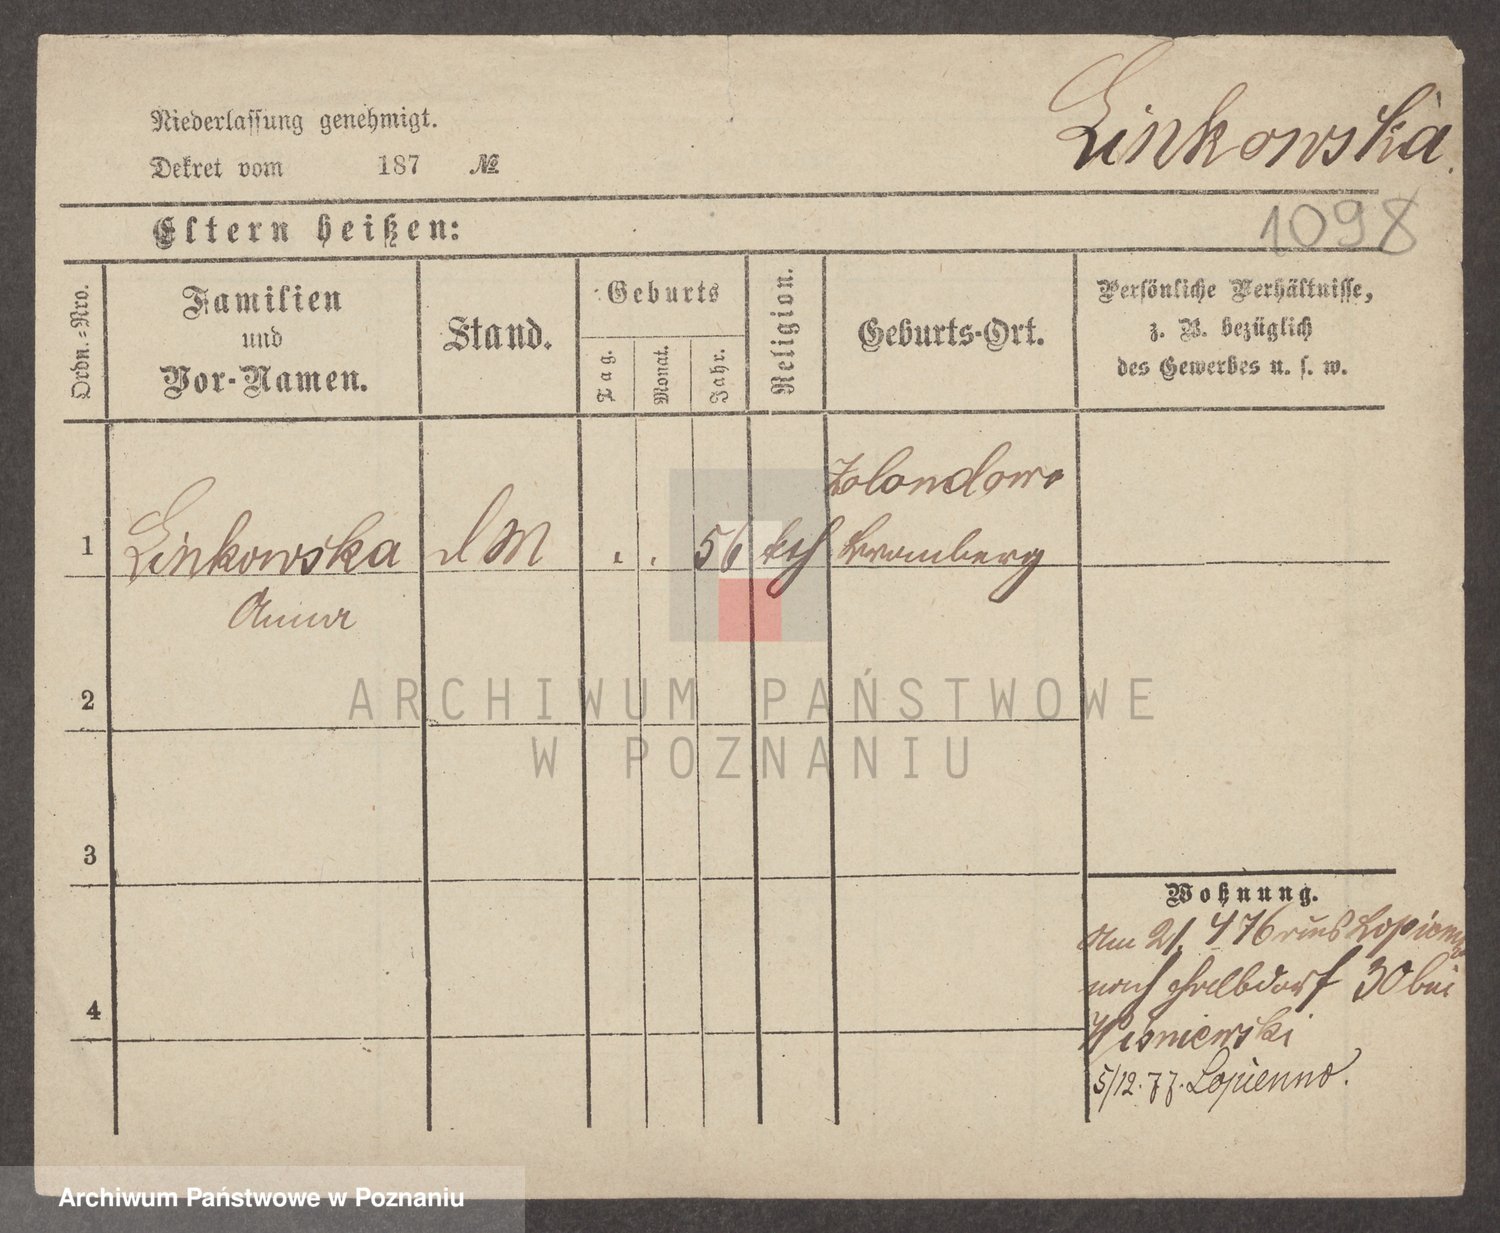 Niederlassung genehmigt.
Linkowska.
Dekret vom 187 №
Eltern heißen:
1098
Ordn.-Nro.
Familien
und
Vor-Namen.
Stand.
Geburts
Tag.
Monat.
Jahr.
Religion.
Geburts-Ort.
Persönliche Verhältnisse,
z. B. bezüglich
des Gewerbes u. s. w.
1
Linkowska
Anna
d M
. .
56
kth
Zolondowo
Bromberg
2
3
4
Wohnung.
Am 21. 4 76 aus Lopienno
nach 30 bei
Wisniewski
5/12. 77. Lopienno.
ARCHIWUM PAŃSTWOWE
W POZNANIU
Archiwum Państwowe w Poznaniu